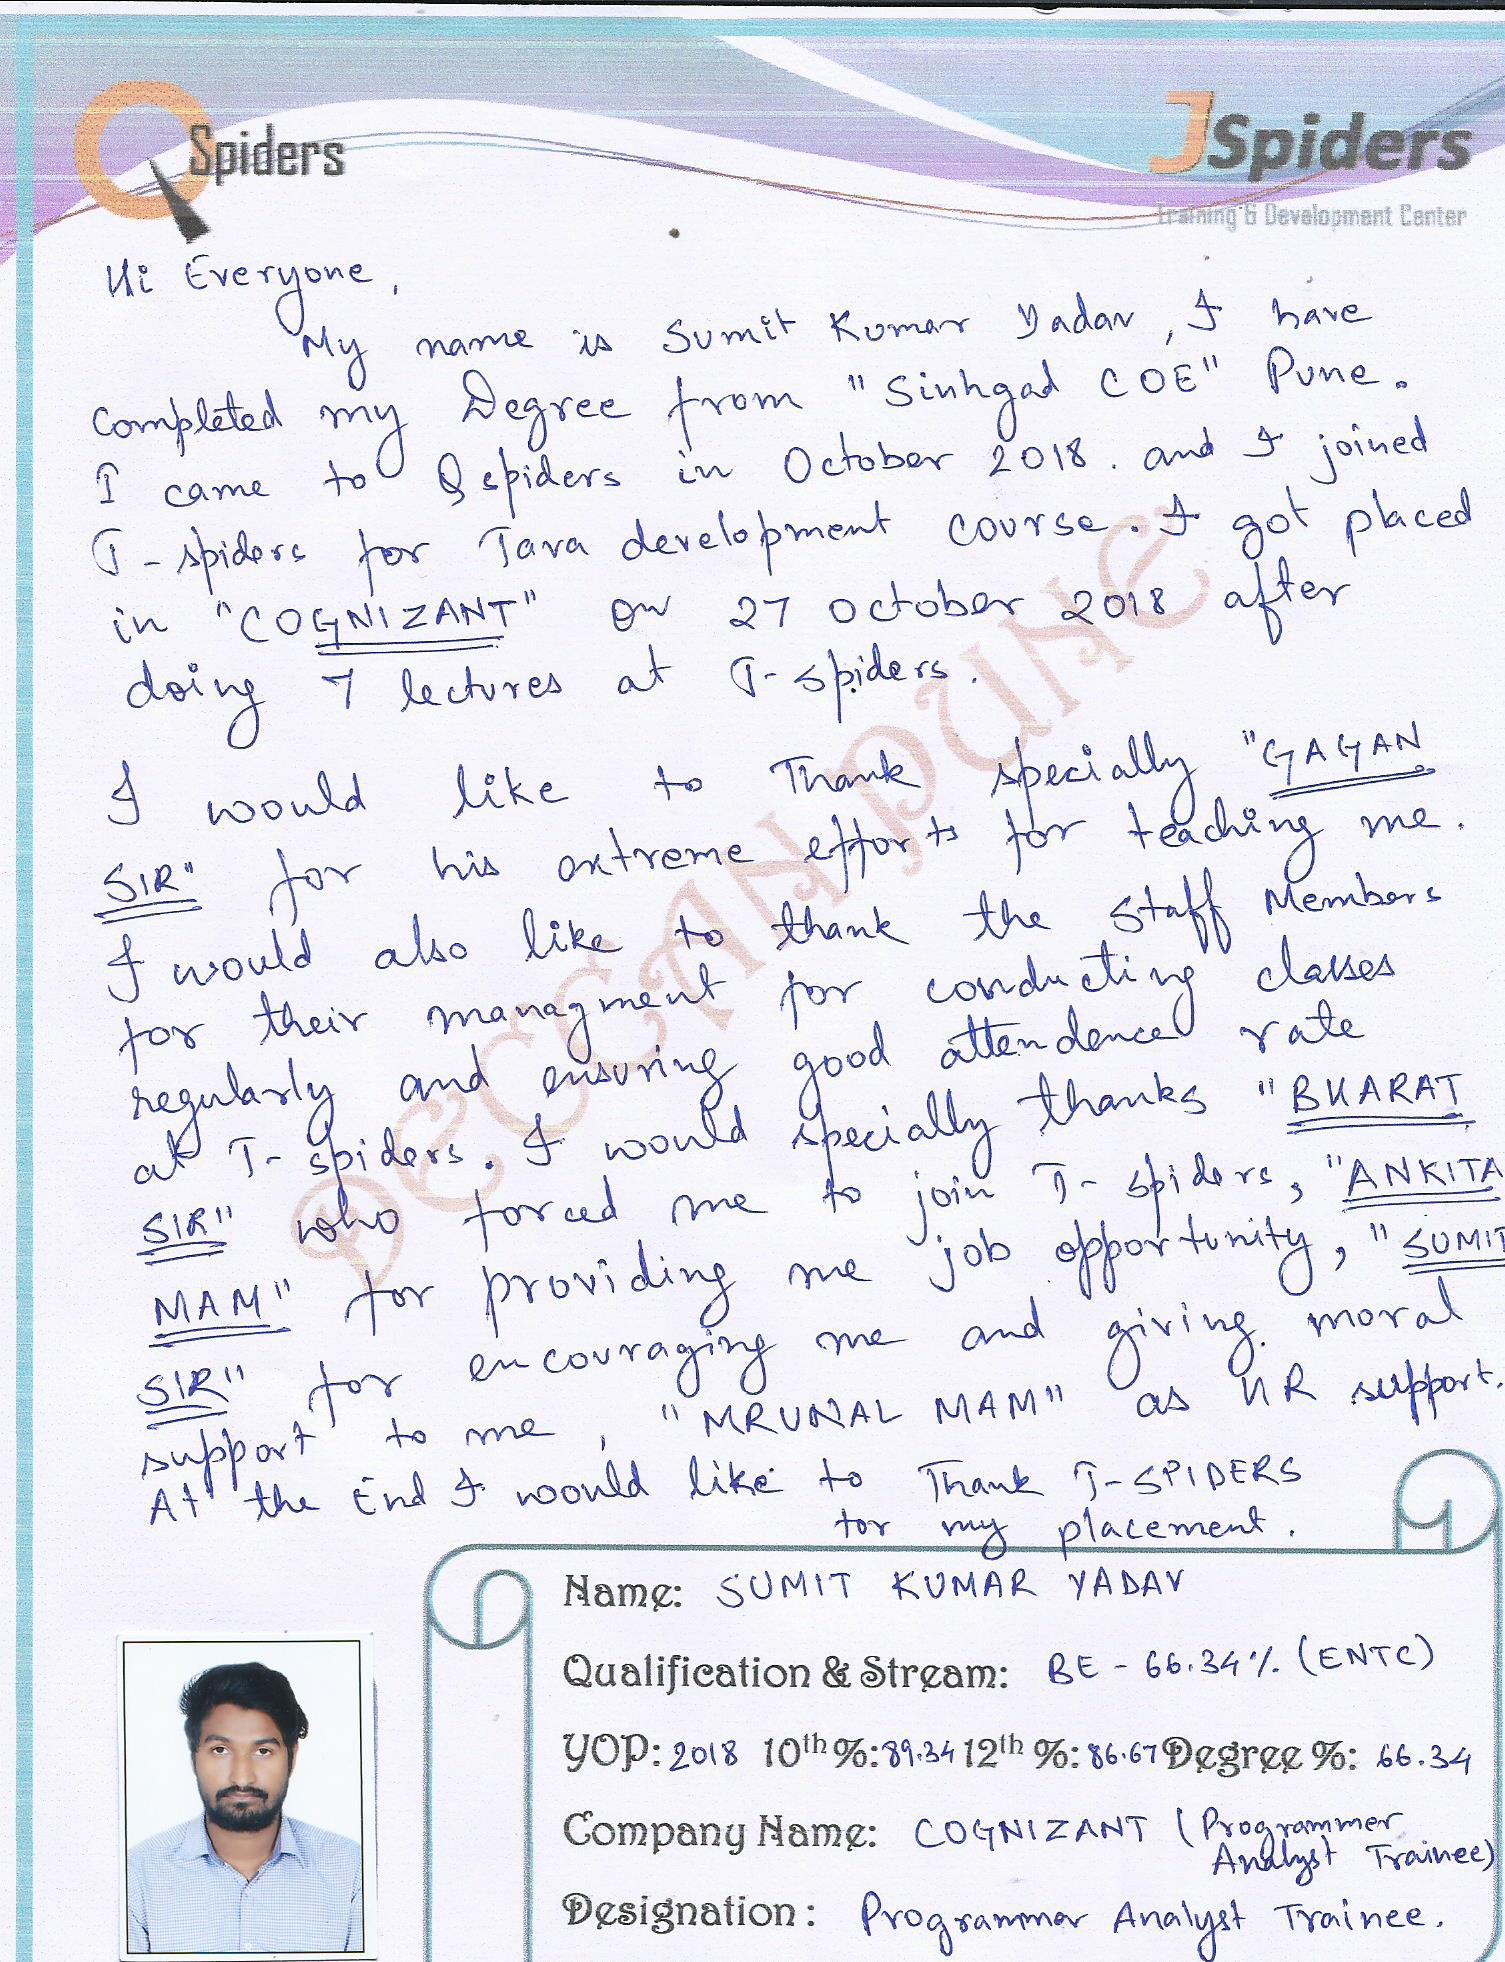 QSpiders
JSpiders
Training & Development Center
Hi Everyone,
My name is Sumit Kumar Yadav, I have
completed my Degree from "Sinhgad COE" Pune.
I came to Qspiders in October 2018. and I joined
J-spiders for Java development course. I got placed
in "COGNIZANT" on 27 October 2018 after
doing 7 lectures at J-spiders.
I would like to Thank specially "GAGAN
SIR" for his extreme efforts for teaching me.
I would also like to thank the Staff Members
for their managment for conducting classes
regularly and ensuring good attendence rate
at J-spiders. I would specially thanks "BHARAT
SIR" who forced me to join J-spiders, "ANKITA
MAM" for providing me job opportunity, "SUMIT
SIR" for encouraging me and giving moral
support to me, "MRUNAL MAM" as HR support.
At the End I would like to Thank J-SPIDERS
for my placement.
DECCAN PUNE
Name: SUMIT KUMAR YADAV
Qualification & Stream: BE - 66.34% (ENTC)
YOP: 2018 10th %: 89.34 12th %: 86.67 Degree %: 66.34
Company Name: COGNIZANT (Programmer
Analyst Trainee)
Designation: Programmer Analyst Trainee.